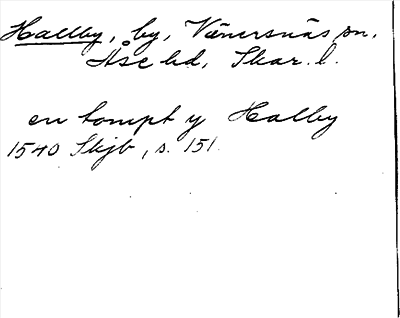 Hallby, by, Vänersnäs sn,
Åse hd, Skar. l.
en tompt y Halby
1540 Skjb, s. 151.